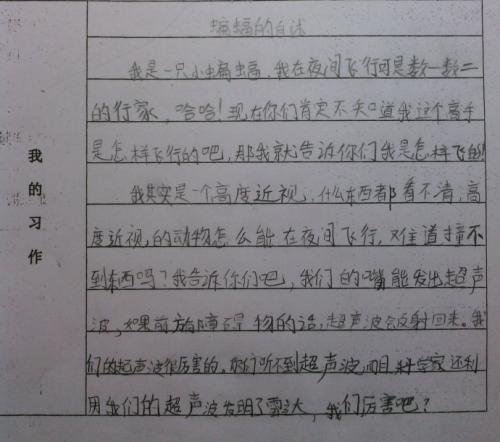 蝙蝠的自述
我是一只小蝙蝠,我在夜间飞行可是数一数二
的行家,哈哈!现在你们肯定不知道我这个高手
是怎样飞行的吧,那我就告诉你们我是怎样飞的!
我其实是一个高度近视,什么东西都看不清,高
度近视的动物怎么能在夜间飞行,难道撞不
到东西吗?我告诉你们吧,我们的嘴能发出超声
波,如果前方障碍物的话,超声波会反射回来。我
们的超声波很厉害的。你们听不到超声波,而且科学家还利
用我们的超声波发明了雷达,我们厉害吧?
我的习作